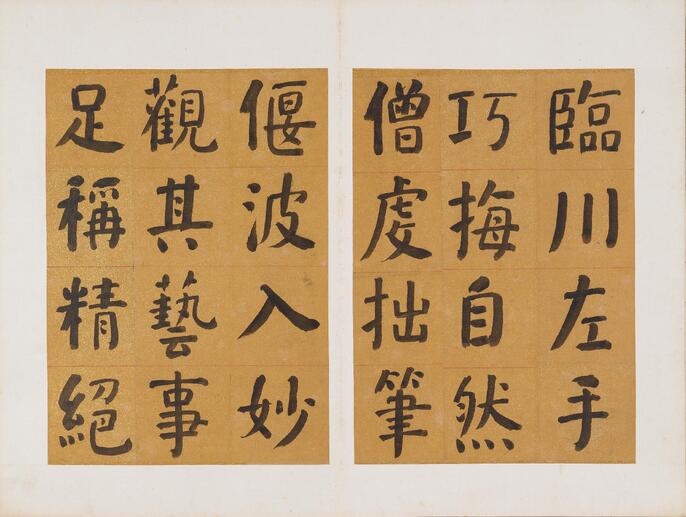 臨川左手
巧悔自然
僧虔拙筆
偃波入妙
觀其藝事
足稱精絕